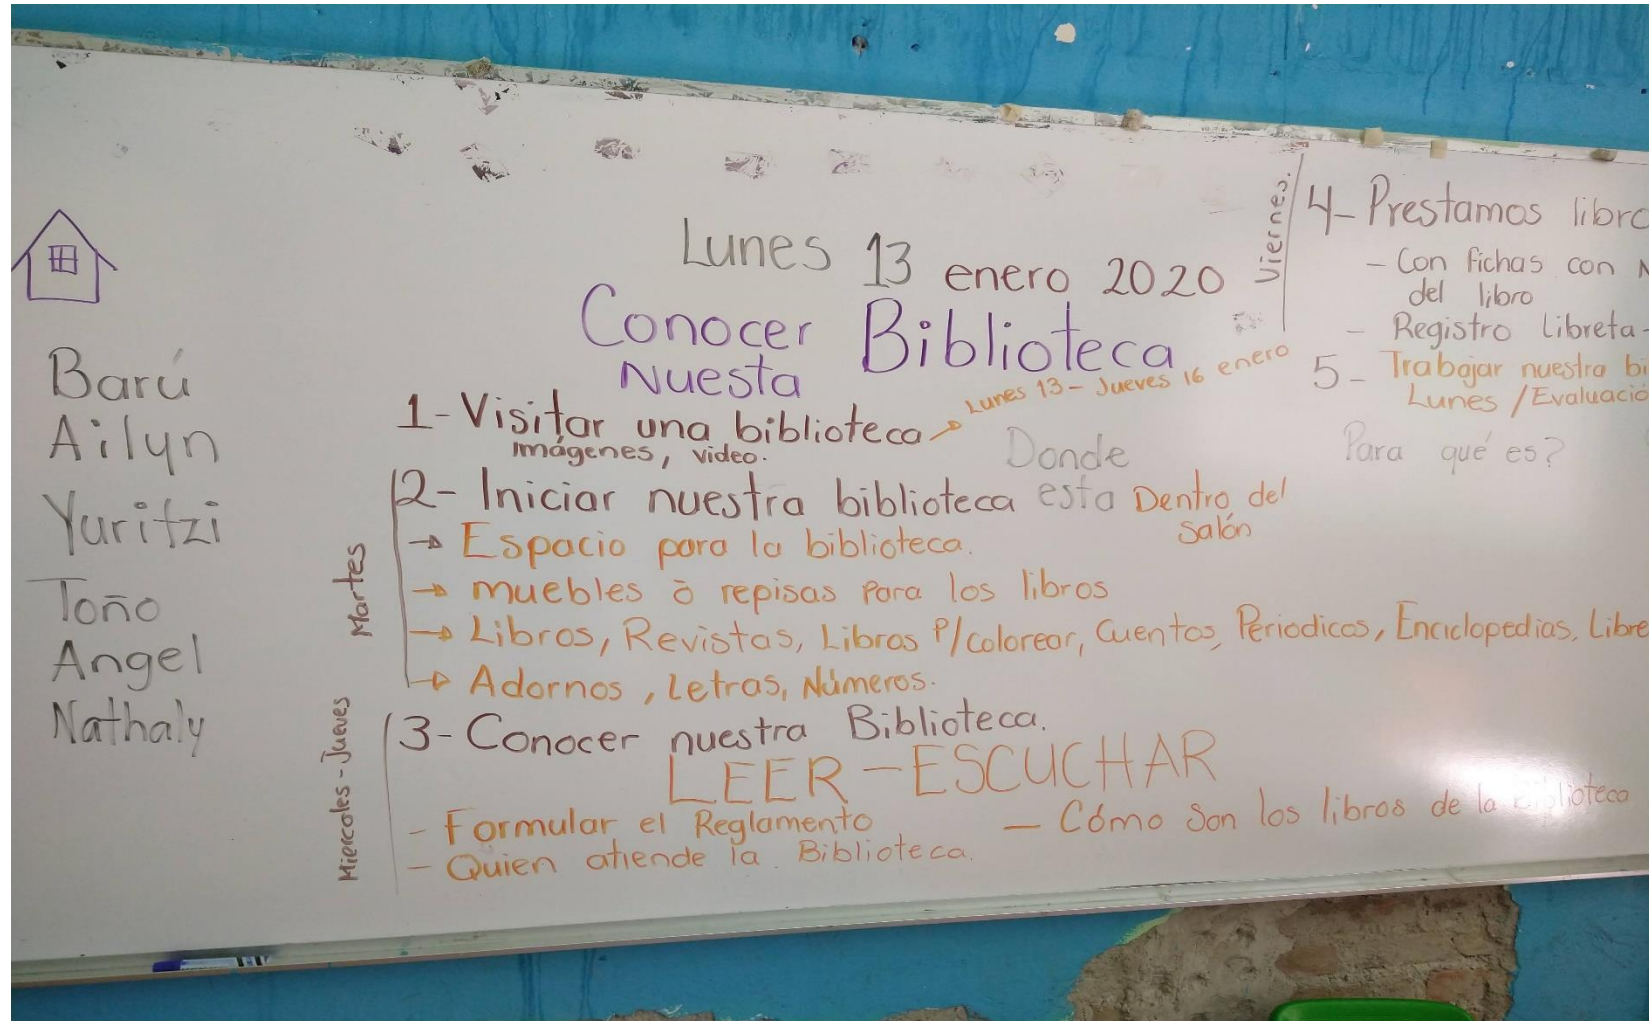 Barú
Ailyn
Yuritzi
Toño
Angel
Nathaly
Lunes 13 enero 2020
Conocer Biblioteca
Nuesta
1- Visitar una biblioteca
Lunes 13 - Jueves 16 enero
Imágenes, video.
Martes
2- Iniciar nuestra biblioteca
Donde
esta Dentro del
Salón
Espacio para la biblioteca.
muebles ó repisas para los libros
Libros, Revistas, Libros P/colorear, Cuentos, Periodicos, Enciclopedias, Libre
Adornos, Letras, Números.
Miercoles - Jueves
3- Conocer nuestra Biblioteca.
LEER - ESCUCHAR
- Formular el Reglamento
- Quien atiende la Biblioteca.
- Cómo Son los libros de la biblioteca
Viernes.
4- Prestamos libro
- Con fichas con N
del libro
- Registro Libreta-
5- Trabajar nuestra bi
Lunes / Evaluació
Para qué es?